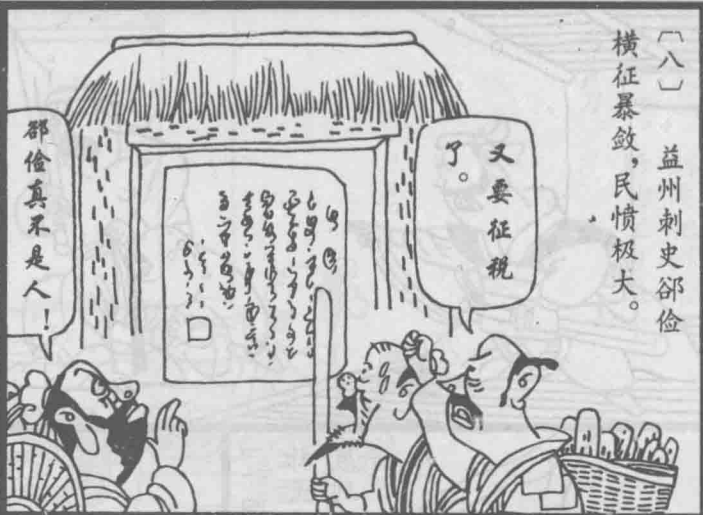 〔八〕 益州刺史郤俭
横征暴敛，民愤极大。
又要征税
了。
邵俭真不是人！